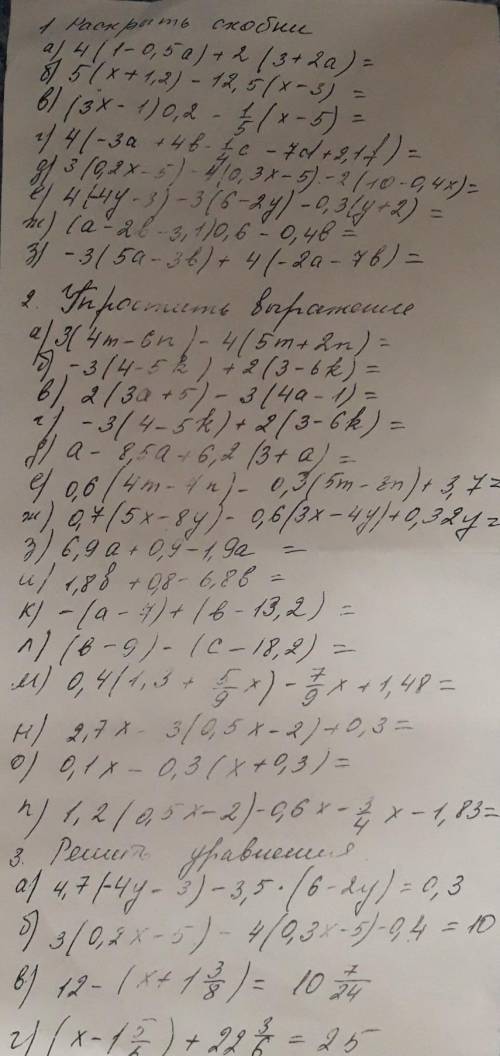 1 Раскрыть скобки
а) 4(1-0,5а)+2(3+2а)=
б) 5(х+1,2)-12,5(х-3)=
в) (3х-1)0,2-1/5(х-5)=
г) 4(-3а+4в-1/4с-7d+2,1f)=
д) 3(0,2х-5)-4(0,3х-5)-2(10-0,4х)=
е) 4(-4у-3)-3(6-2у)-0,3(у+2)=
ж) (а-2в-3,1)0,6-0,4в=
з) -3(5а-3в)+4(-2а-7в)=
2. Упростить выражение
а) 3(4m-6n)-4(5m+2n)=
б) -3(4-5k)+2(3-6k)=
в) 2(3а+5)-3(4а-1)=
г) -3(4-5k)+2(3-6k)=
д) а-8,5а+6,2(3+а)=
е) 0,6(4m-4n)-0,3(5m-8n)+3,7=
ж) 0,7(5х-8у)-0,6(3х-4у)+0,32у=
з) 6,9а+0,9-1,9а=
и) 1,8в+0,8-6,8в=
к) -(а-7)+(в-13,2)=
л) (в-9)-(с-18,2)=
м) 0,4(1,3+5/9х)-7/9х+1,48=
н) 2,7х-3(0,5х-2)+0,3=
о) 0,1х-0,3(х+0,3)=
п) 1,2(0,5х-2)-0,6х-3/4х-1,83=
3. Решить уравнения
а) 4,7(-4у-3)-3,5·(6-2у)=0,3
б) 3(0,2х-5)-4(0,3х-5)-0,4=10
в) 12-(х+1 3/8)=10 7/24
г) (х-1 5/6)+22 3/6=25